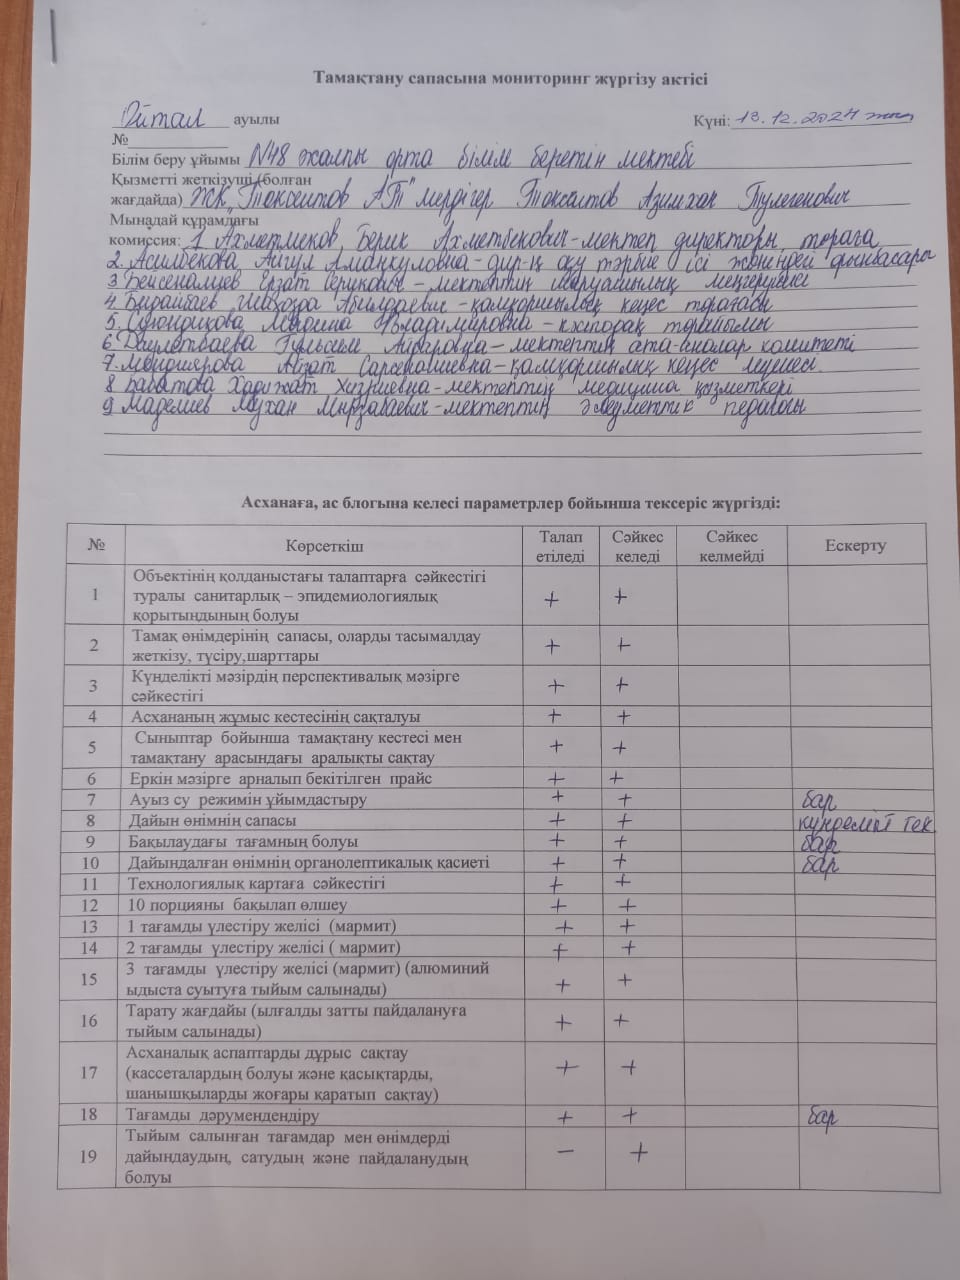 Тамақтану сапасына мониторинг жүргізу актісі
Ойтал ауылы Күні: 13.12.2024 жыл
№
Білім беру ұйымы N48 жалпы орта білім беретін мектебі
Қызметті жеткізуші (болған
жағдайда) ЖК "Токсеитов АТ" мердігер Токсеитов Азимхан Тулегенович
Мынадай құрамдағы
комиссия: 1 Ахметшеков Берик Ахметбекович-мектеп директоры, төраға
2. Асилбекова Айгүл Аманкуловна-дир-ң оқу тәрбие ісі жөніндегі орынбасары
3 Бейсеналиев Ерзат Серикович - мектептің шаруашылық меңгерушісі
4. Абилдаевич - қамқоршылық кеңес төрағасы
5. Владимировна - кәсіподақ төрайымы
6. Даулетбаева Гульсим Айдаровна - мектептің ата-аналар комитеті
7. Айзат Сарсеналиевна-қамқоршылық кеңес мүшесі
8 Бабатова Хадижат Хизриевна-мектептің медицина қызметкері
9 Маделиев Мухан Мирзабаевич-мектептің әлеуметтік педагогы
Асханаға, ас блогына келесі параметрлер бойынша тексеріс жүргізді:
№ Көрсеткіш Талап етіледі Сәйкес келеді Сәйкес келмейді Ескерту
1 Объектінің қолданыстағы талаптарға сәйкестігі
туралы санитарлық – эпидемиологиялық + +
қорытындының болуы
2 Тамақ өнімдерінің сапасы, оларды тасымалдау
жеткізу, түсіру,шарттары + +
3 Күнделікті мәзірдің перспективалық мәзірге
сәйкестігі + +
4 Асхананың жұмыс кестесінің сақталуы + +
5 Сыныптар бойынша тамақтану кестесі мен
тамақтану арасындағы аралықты сақтау + +
6 Еркін мәзірге арналып бекітілген прайс + +
7 Ауыз су режимін ұйымдастыру + + бар
8 Дайын өнімнің сапасы + + күнделікті тек
9 Бақылаудағы тағамның болуы + + бар
10 Дайындалған өнімнің органолептикалық қасиеті + + бар
11 Технологиялық картаға сәйкестігі + +
12 10 порцияны бақылап өлшеу + +
13 1 тағамды үлестіру желісі (мармит) + +
14 2 тағамды үлестіру желісі ( мармит) + +
15 3 тағамды үлестіру желісі (мармит) (алюминий
ыдыста суытуға тыйым салынады) + +
16 Тарату жағдайы (ылғалды затты пайдалануға
тыйым салынады) + +
17 Асханалық аспаптарды дұрыс сақтау
(кассеталардың болуы және қасықтарды, + +
шанышқыларды жоғары қаратып сақтау)
18 Тағамды дәрумендендіру + + бар
19 Тыйым салынған тағамдар мен өнімдерді
дайындаудың, сатудың және пайдаланудың − +
болуы